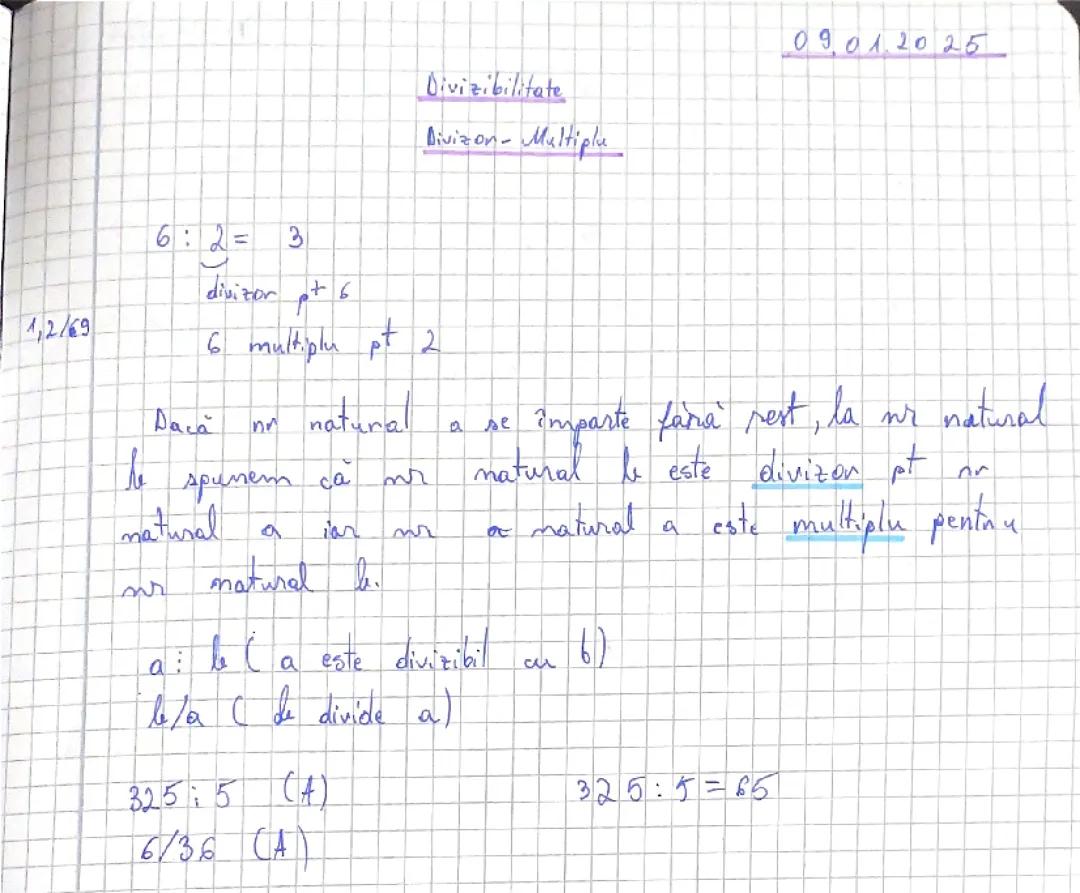 09.01.2025
Divizibilitate
Divizor - Multiplu
6 : 2 = 3
divizor pt 6
1,2/69
6 multiplu pt 2
Dacă nr natural a se împarte fără rest, la nr natural
b spunem că nr natural b este divizor pt nr
natural a iar nr natural a este multiplu pentru
nr natural b.
a ⋮ b ( a este divizibil cu b)
b/a ( b divide a)
325 ⋮ 5 (A) 325 : 5 = 65
6/36 (A)